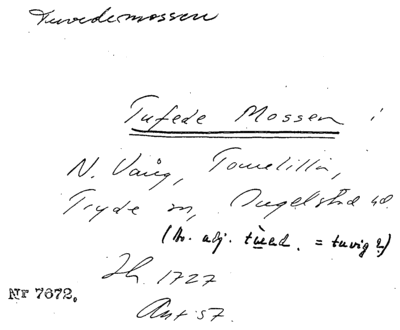 Tuvedemossen
Tufede Mossen i
N. Vång, Tomelilla,
Tryde sn, Ingelstad hd.
(Av. adj. tùed. = tuvig?)
Jh. 1727
Ant 57.
Nr 7672.